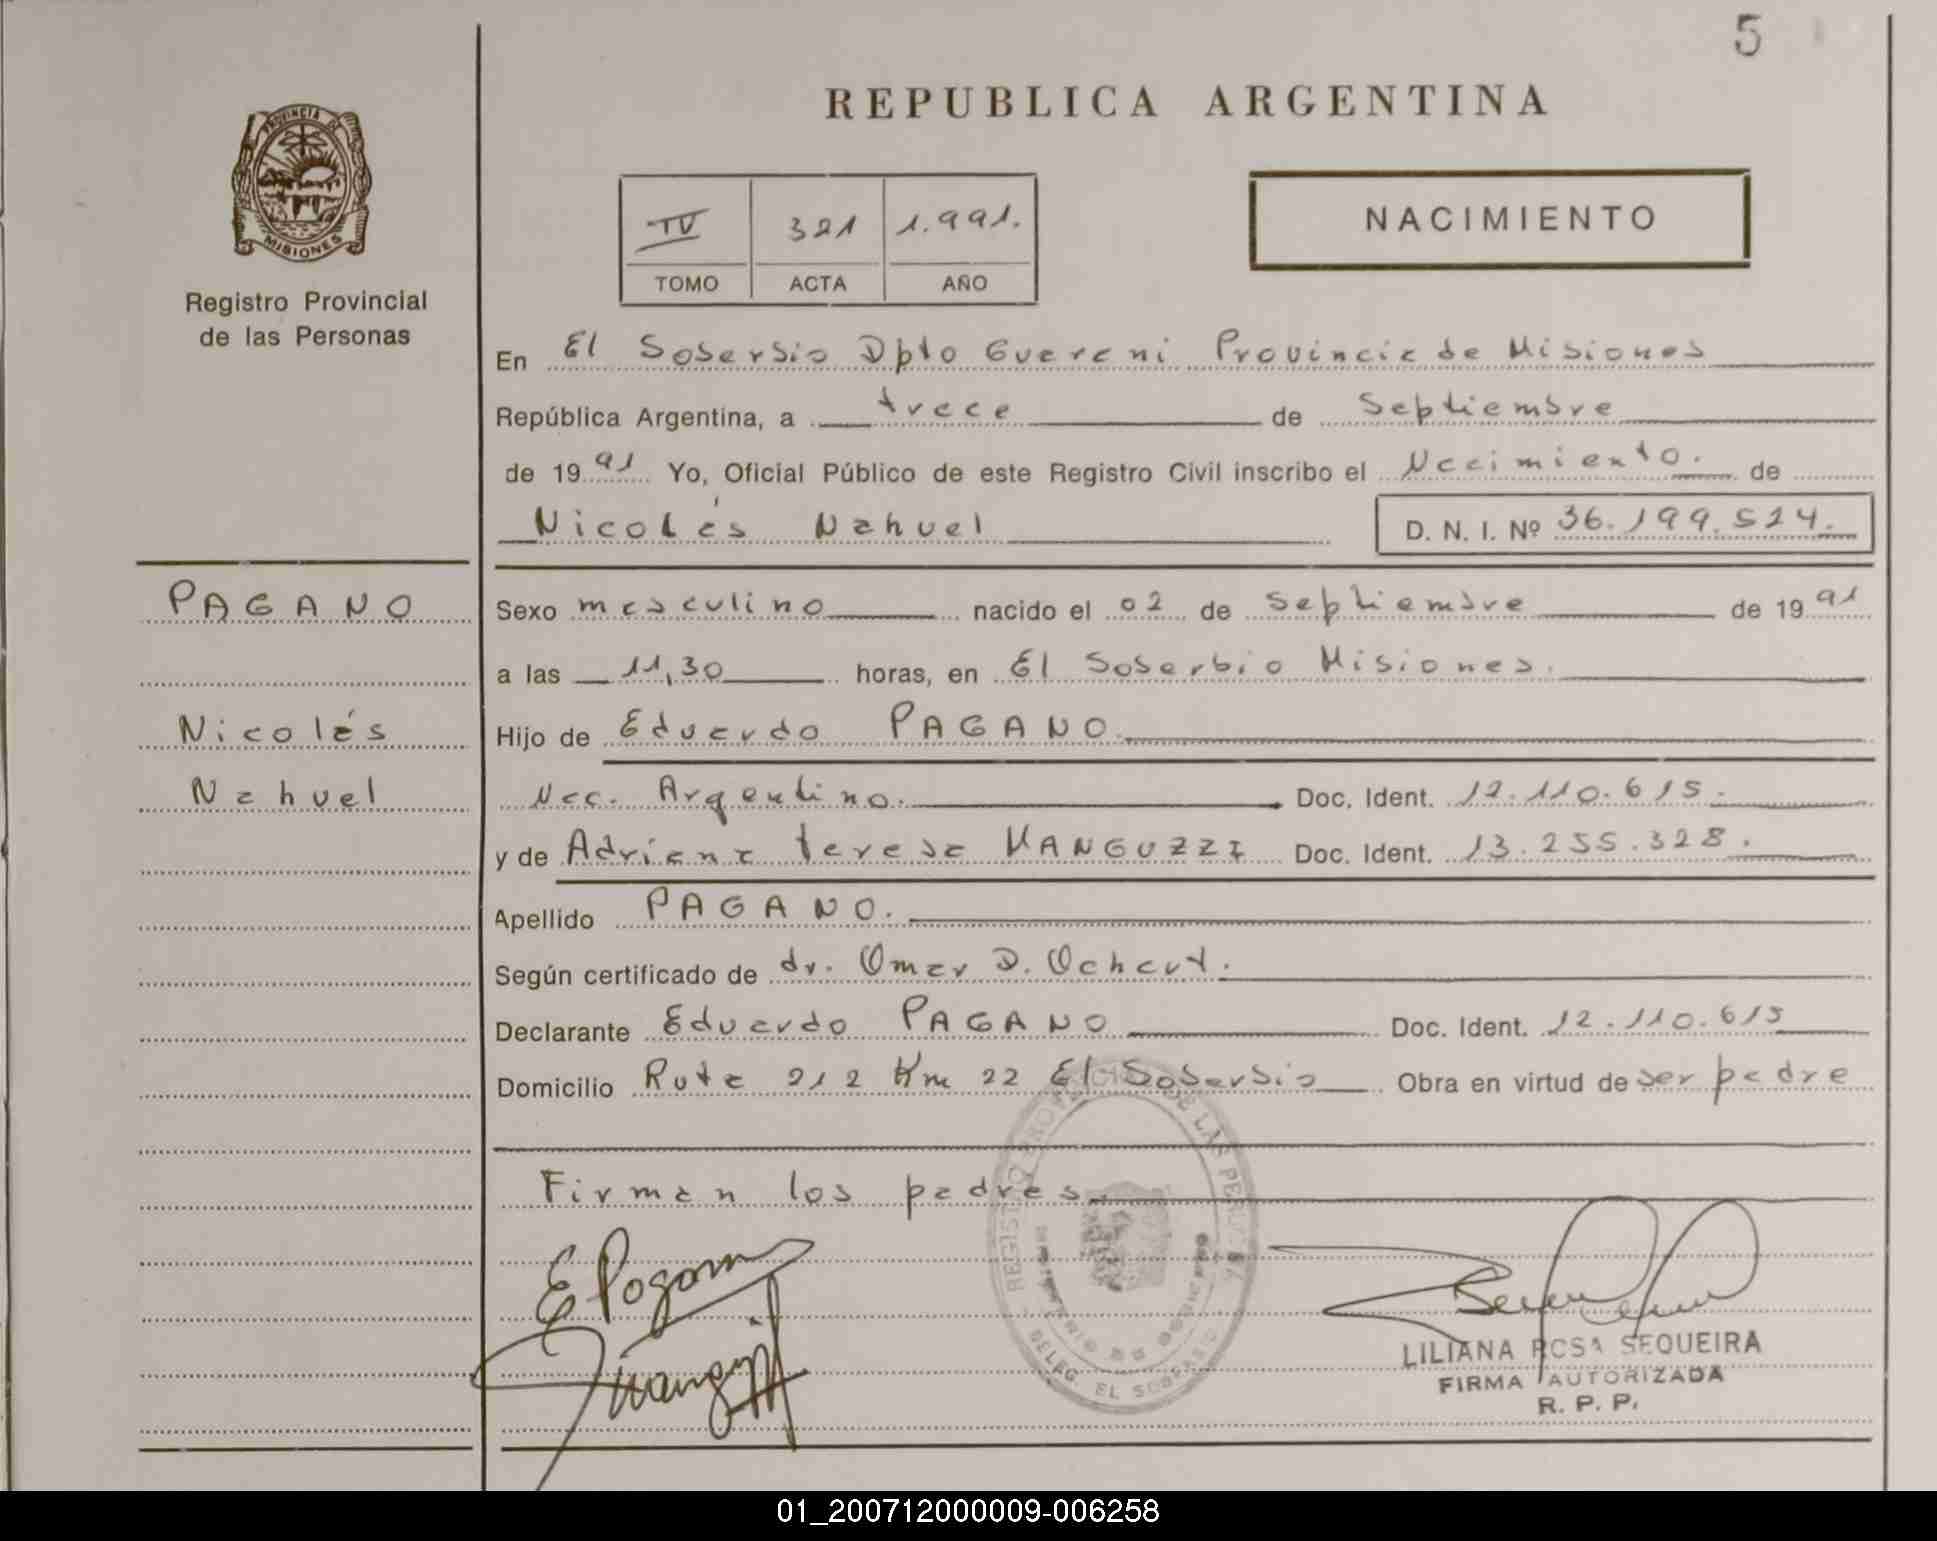 5
REPUBLICA ARGENTINA
PROVINCIA DE
MISIONES
Registro Provincial
de las Personas
IV 321 1.991.
TOMO ACTA AÑO
NACIMIENTO
En El Soberbio Dpto Guarani Provincia de Misiones
República Argentina, a trece de Septiembre
de 1991 Yo, Oficial Público de este Registro Civil inscribo el Nacimiento. de
Nicolás Nahuel D. N. I. Nº 36.199.524.
PAGANO
Nicolás
Nahuel
Sexo masculino nacido el 02 de Septiembre de 1991
a las 11,30 horas, en El Soberbio Misiones.
Hijo de Eduardo PAGANO.
Nac. Argentino. Doc. Ident. 12.110.615.
y de Adriana teresa MANGUZZI Doc. Ident. 13.255.328.
Apellido PAGANO.
Según certificado de dr. Omar D.
Declarante Eduardo PAGANO Doc. Ident. 12.110.615
Domicilio Ruta 212 Km 22 El Soberbio Obra en virtud de ser padre
Firman los padres.
E Pagano
REGISTRO PROVINCIAL DE LAS PERSONAS
DELEG. EL SOBERBIO
LILIANA ROSA SEQUEIRA
FIRMA AUTORIZADA
R. P. P.
01_200712000009-006258